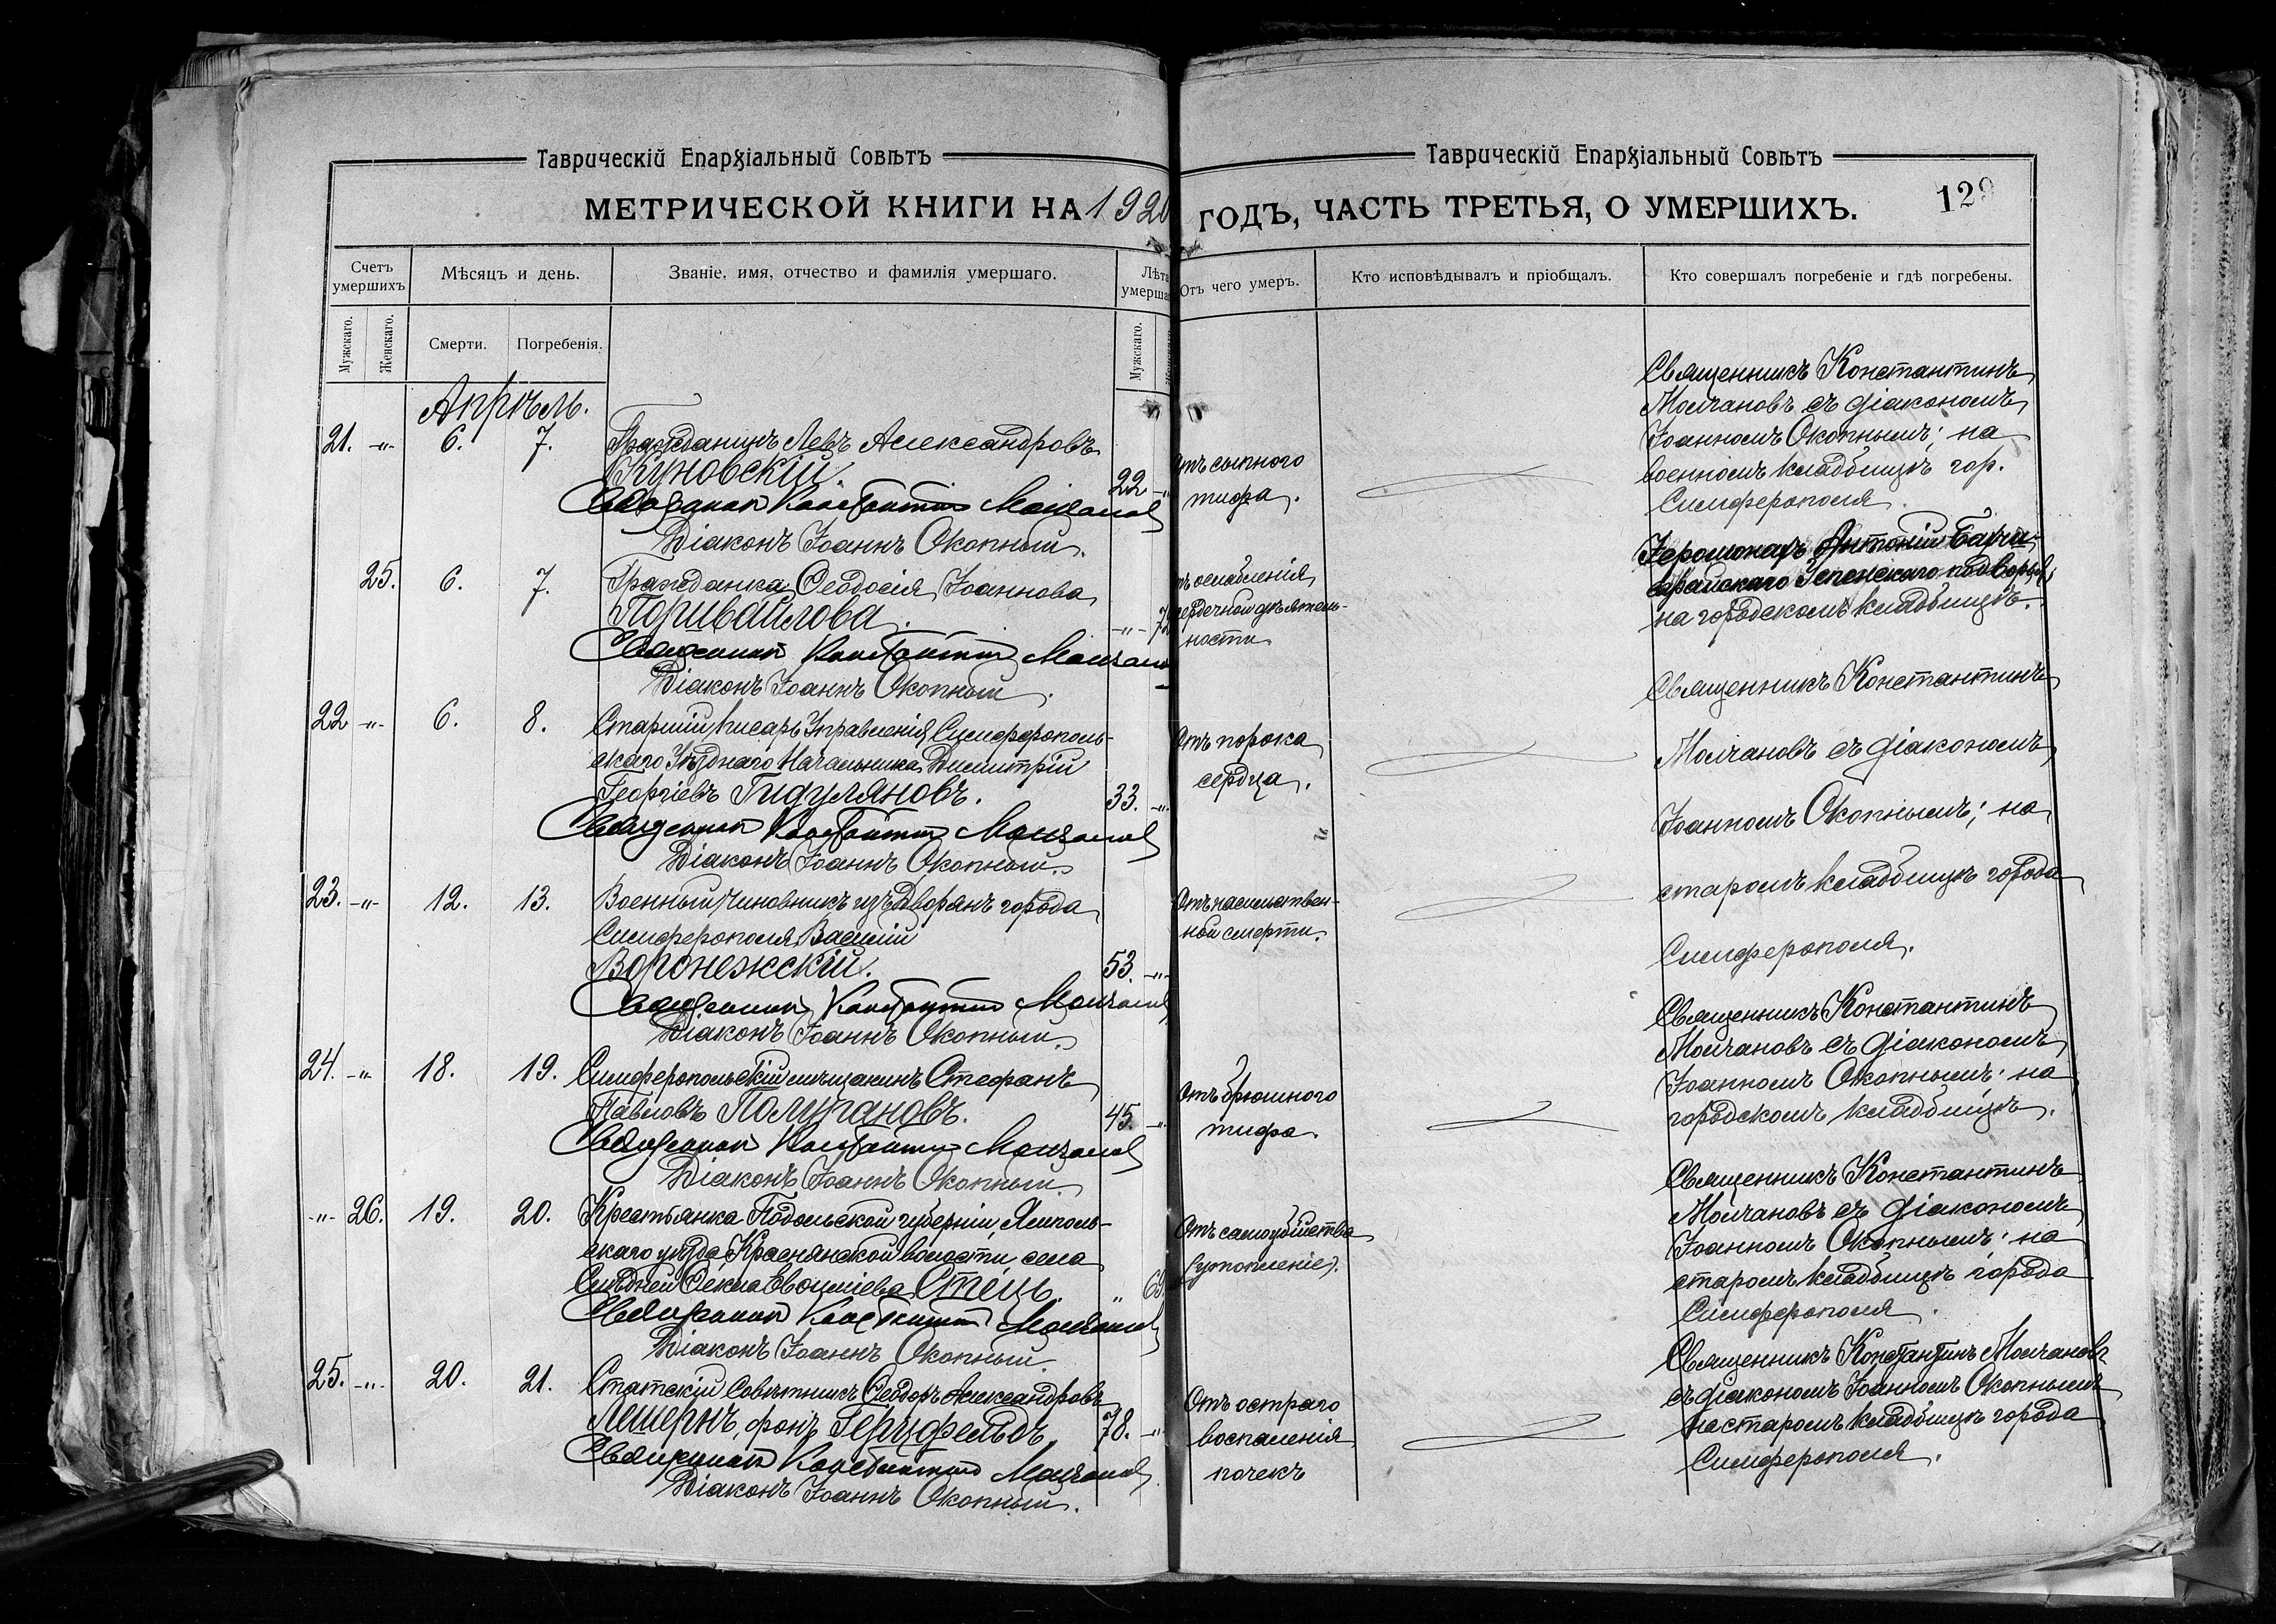 Таврическій Епархіальный Совѣтъ
МЕТРИЧЕСКОЙ КНИГИ НА 1920
Счетъ умершихъ
Мѣсяцъ и день.
Званіе, имя, отчество и фамилія умершаго.
Лѣта
умерша
Мужскаго.
Женскаго.
Смерти.
Погребенія.
Мужскаго.
Апрѣль.
21. -"- 6. 7. Гражданинъ Левъ Александровъ
Куновскій. 22 -"-
Священник Константин Молчанов
Діаконъ Іоаннъ Окопный.
25. 6. 7. Гражданка Ѳеодосія Іоаннова
Поривайлова. -"- 7
Священник Константин Молчанов
Діаконъ Іоаннъ Окопный.
22 -"- 6. 8. Старшій писарь Управленія Симферополь-
скаго Уѣзднаго Начальника Димитрій
Георгіевъ Гидуляновъ. 33. -"-
Священник Константин Молчанов
Діаконъ Іоаннъ Окопный.
23. -"- 12. 13. Военный чиновникъ изъ дворянъ города
Симферополя Василій
Воронежскій. 53 -"-
Священник Константин Молчанов
Діаконъ Іоаннъ Окопный.
24. -"- 18. 19. Симферопольскій мѣщанинъ Стефанъ
Павловъ Полугановъ. 45. -"-
Священник Константин Молчанов
Діаконъ Іоаннъ Окопный.
-"- 26. 19. 20. Крестьянка Подольской губерніи, Ямполь-
скаго уѣзда, Краснянской волости, села
Ѳекла Евѳиміева Стець. " 69
Священник Константин Молчанов
Діаконъ Іоаннъ Окопный.
25. -"- 20. 21. Статскій Совѣтникъ Ѳеодоръ Александровъ
Лешернъ, фонъ Герцфельдъ 78. -"-
Священник Константин Молчанов
Діаконъ Іоаннъ Окопный.
Таврическій Епархіальный Совѣтъ
ГОДЪ, ЧАСТЬ ТРЕТЬЯ, О УМЕРШИХЪ.
129
Отъ чего умеръ.
Кто исповѣдывалъ и пріобщалъ.
Кто совершалъ погребеніе и гдѣ погребены.
Отъ сыпного
тифа.
Священникъ Константинъ
Молчановъ съ діакономъ
Іоанномъ Окопнымъ; на
военномъ кладбищѣ гор.
Симферополя.
ослабленія
сердечной дѣятель-
ности
Іеромонахъ Антоній Бахчи-
сарайскаго Успенскаго подворья;
на городскомъ кладбищѣ.
Отъ порока
сердца.
Отъ насильствен-
ной смерти.
Священникъ Константинъ
Молчановъ съ діакономъ
Іоанномъ Окопнымъ; на
старомъ кладбищѣ города
Симферополя.
Отъ брюшного
тифа.
Священникъ Константинъ
Молчановъ съ діакономъ
Іоанномъ Окопнымъ; на
городскомъ кладбищѣ.
Отъ самоубійства
(утопленіе).
Священникъ Константинъ
Молчановъ съ діакономъ
Іоанномъ Окопнымъ; на
старомъ кладбищѣ города
Симферополя.
Отъ остраго
воспаленія
почекъ
Священникъ Константинъ Молчановъ
съ діакономъ Іоанномъ Окопнымъ
на старомъ кладбищѣ города
Симферополя.